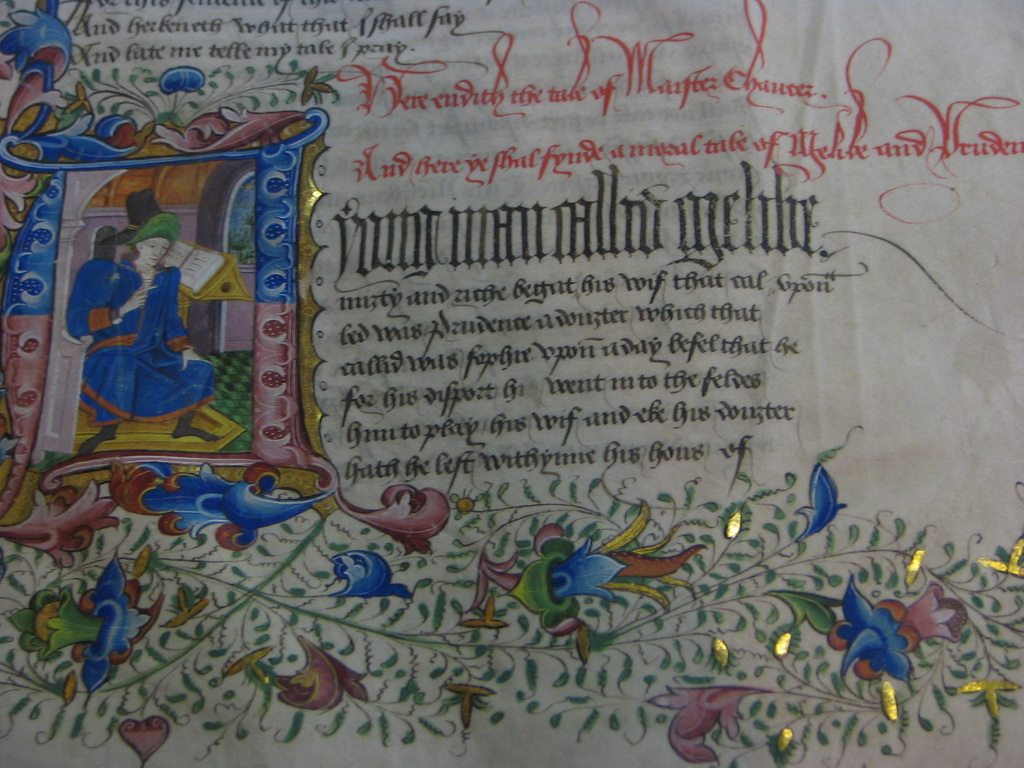 And herkeneth what that I shall say
And late me telle my tale I pray.
Here endith the tale of Maister Chaucer.
And here ye shal fynde a moral tale of Melibe and Pruden
yong man callid Melibe.
mizty and riche begat his wif that cal vpon
led was Prudence a douzter which that
callid was sophie vpon a day befel that he
for his disport he went in to the feldes
him to pley his wif and eke his douzter
hath he left withynne his hous of